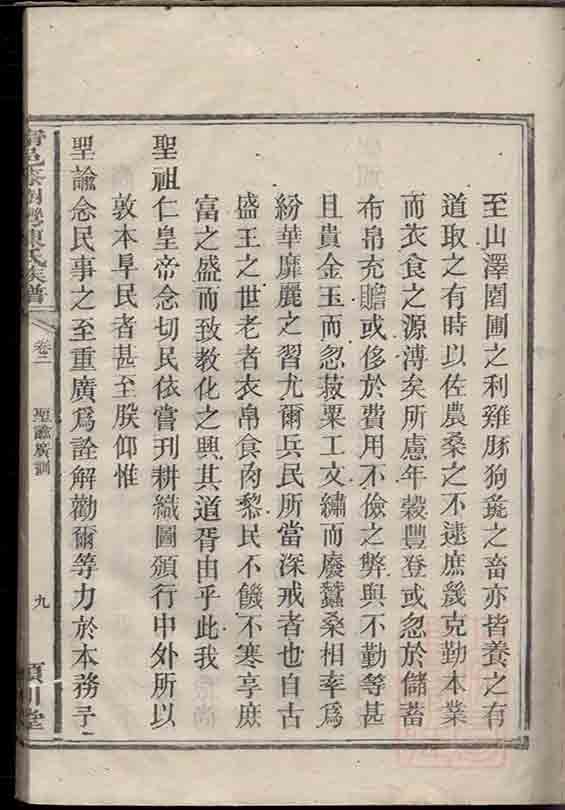 至山澤園圃之利雞豚狗彘之畜亦皆養之有
道取之有時以佐農桑之不逮庶幾克勤本業
而衣食之源溥矣所慮年穀豐登或忽於儲蓄
布帛充贍或侈於費用不儉之弊與不勤等甚
且貴金玉而忽菽粟工文繡而廢蠶桑相率爲
紛華靡麗之習尤爾兵民所當深戒者也自古
盛王之世老者衣帛食肉黎民不饑不寒享庶
富之盛而致教化之興其道胥由乎此我
聖祖仁皇帝念切民依嘗刋耕織圖頒行中外所以
敦本阜民者甚至朕仰惟
聖諭念民事之至重廣爲詮解勸爾等力於本務予
陳氏族譜
卷二
聖諭廣訓
九
潁川堂